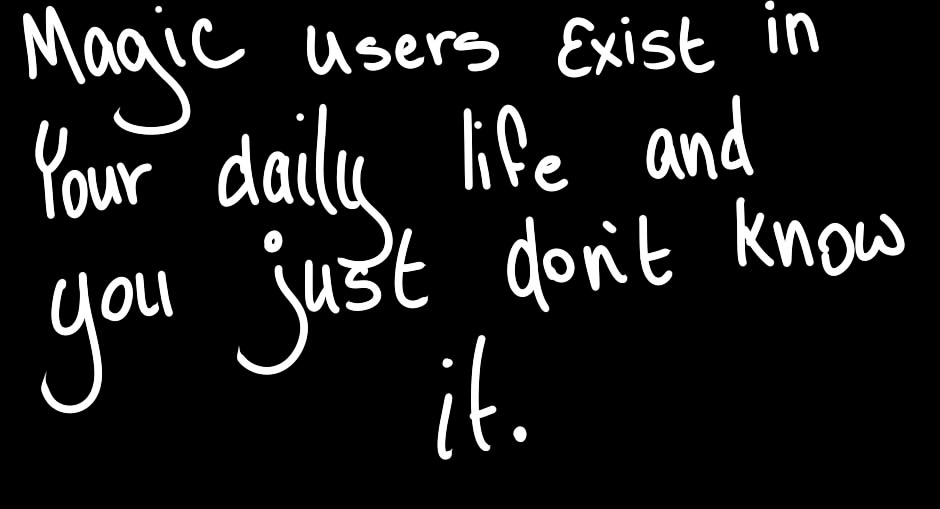 Magic users Exist in
Your daily life and
you just don't know
it.